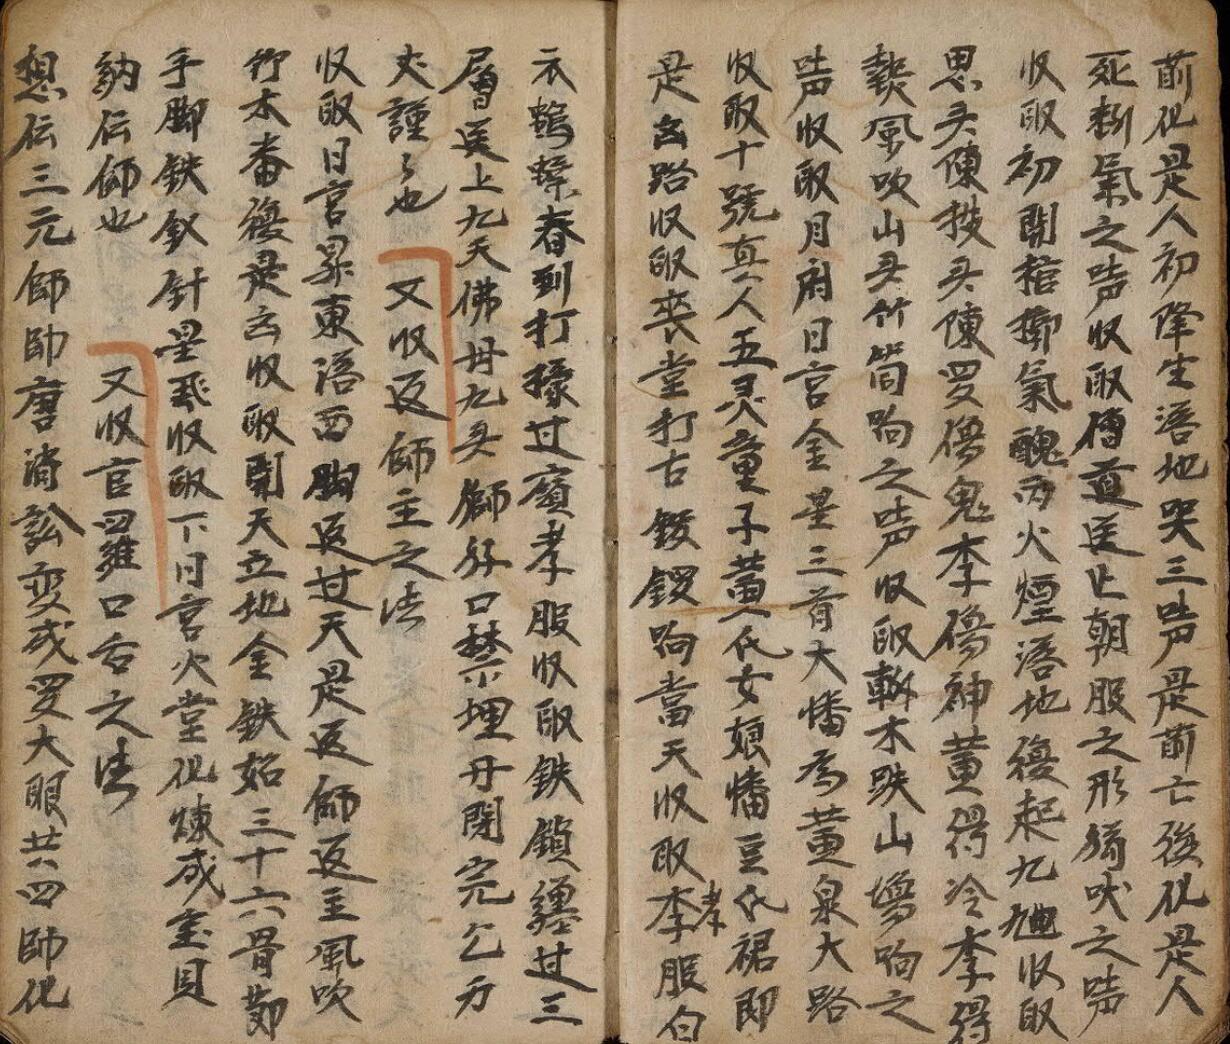 前化是人初降生落地哭三声是前亡後化是人
死断氣之声收取傳道送上朝服之形犸吠之声
收取初開棺槨氣醜丙火煙落地後起九魁收取
思头陳授头陳罗傷鬼李傷神黄得冷李得
熱風吹山头竹筒响之声收取斬木跌山塲响之
声收取月府日宫金星三首大幡為黄泉大路
收取十號真人五灵童子黄人氏女娘幡豆氏裙即
是玄路收取丧堂打古鈸鑼响當天收取李孝服白
衣鶴 春到打 过廣孝服收取鉄鎖纏过三
層送上九天佛毋九头獅 口禁埋丹閉完乞方
丈謹之也 又收返師主之法
收取日宫昇東落西 返过天是返師返主風吹
竹木番後是玄收取開天立地金鉄始三十六骨節
手脚鉄釵針星飛收取下日宫火堂化煉成宝貝
納伝師也 又收官羅口舌之法
想伝三元師帥唐 訟变成罗大眼廿四師化